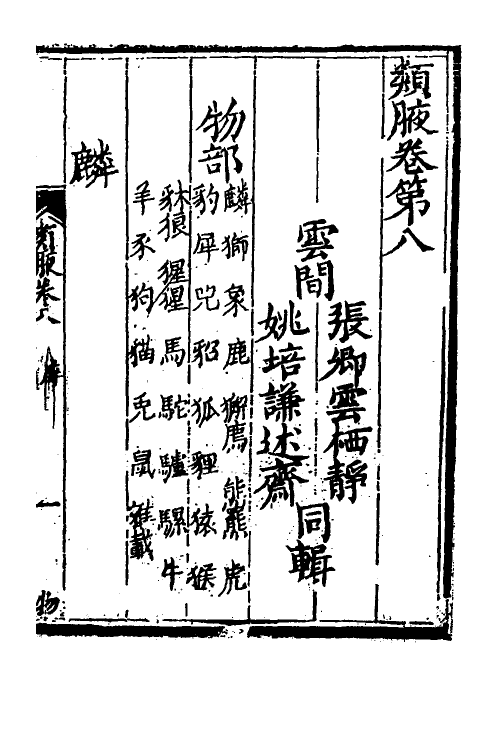 類腋卷第八
雲間
張卿雲栖靜
姚培謙述齋
同輯
物部
麟 獅 象 鹿 獬廌 熊羆 虎
豹 犀 兕 貂 狐 狸 猿 猴
豺狼 猩猩 馬 駝 驢 騾 牛
羊 豕 狗 貓 兎 鼠 雜載
麟
類腋卷八
一
物